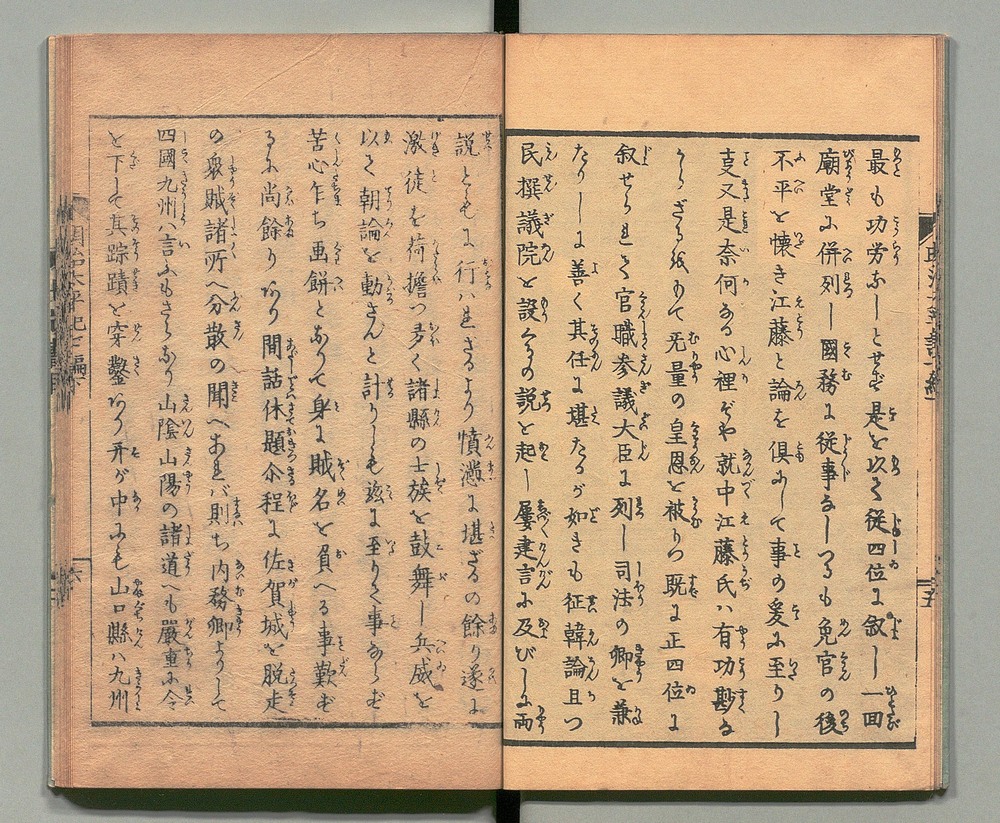 最も功労なしとせず是を以て従四位に叙し一回
廟堂に併列し國務に従事なしつるも免官の後
不平を懐き江藤と論を倶にして事の爰に至りし
支又是奈何なる心裡ぞや就中江藤氏ハ有功尠な
からざるを以て无量の皇恩を被りつ既に正四位に
叙せられて官職参議大臣に列し司法の卿を兼
たりしに善く其任に堪たるが如きも征韓論且つ
民撰議院を設くるの説を起し屡建言に及びしに両
説ともに行ハれざるより憤懣に堪ざるの餘り遂に
激徒を荷擔つ多く諸縣の士族を鼓舞し兵威を
以て朝論を動さんと計りしも茲に至りて事ならず
苦心乍ち画餅となりて身に賊名を負へる事歎ず
るに尚餘りあり間話休題尒程に佐賀城を脱走
の衆賊諸所へ分散の聞へあれバ則ち内務卿よりして
四國九州ハ言ふもさらなり山陰山陽の諸道へも嚴重に令
を下して其踪蹟を穿鑿あり开が中にも山口縣ハ九州
明治太平記七編下
六